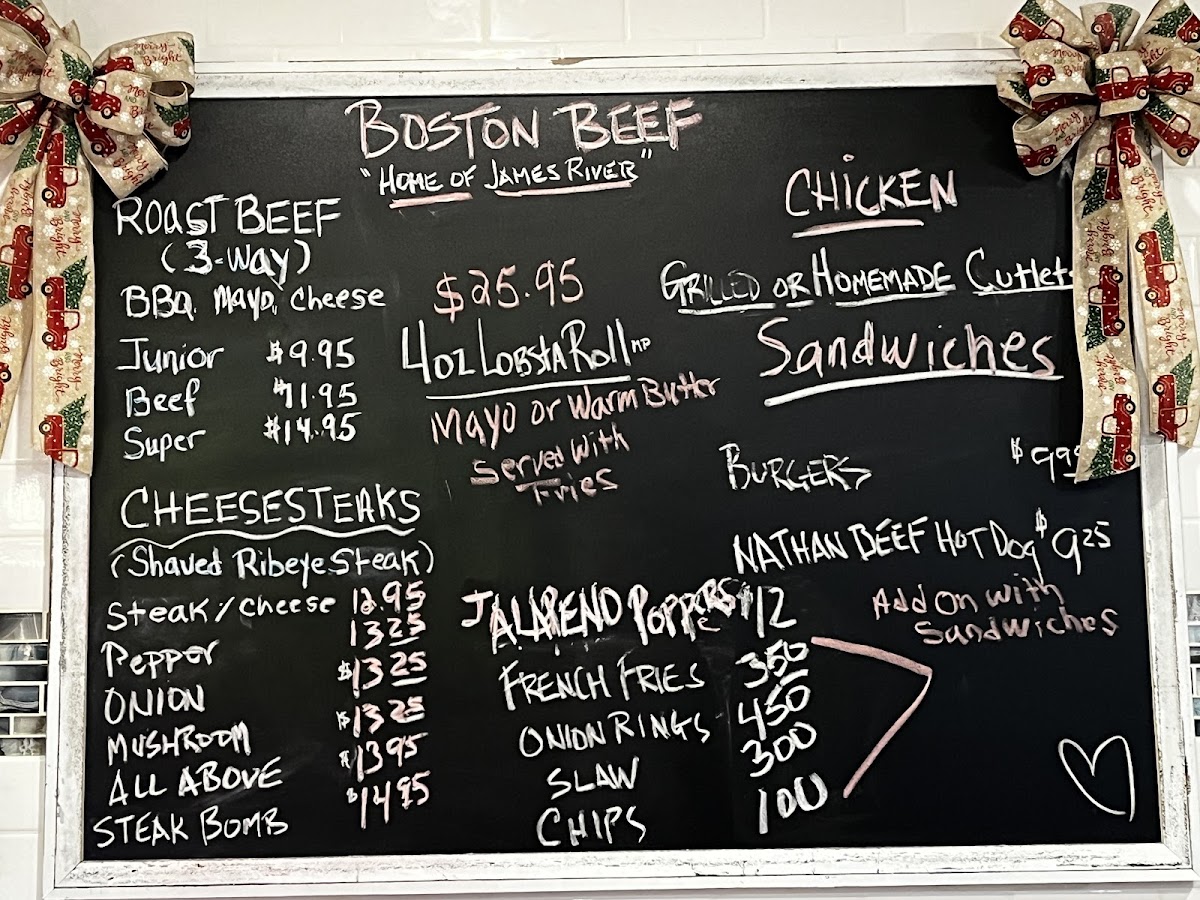 BOSTON BEEF
"HOME OF JAMES RIVER"
ROAST BEEF
(3-way)
BBQ Mayo, cheese
Junior $9.95
Beef $11.95
Super $14.95
CHEESESTEAKS
(Shaved Ribeye Steak)
Steak/cheese 12.95
Pepper 1325
ONION $1325
MUSHROOM $1325
ALL ABOVE $1395
STEAK BOMB $1495
$25.95
4oz LOBSTA ROLL MP
MAYO or Warm Butter
Served With
Fries
JALAPENO POPPERS $12
FRENCH FRIES 350
ONION RINGS 450
SLAW 300
CHIPS 100
CHICKEN
GRILLED OR HOMEMADE Cutlets
Sandwiches
BURGERS $995
NATHAN BEEF HOT DOG $925
Add On with
Sandwiches
Merry and Bright